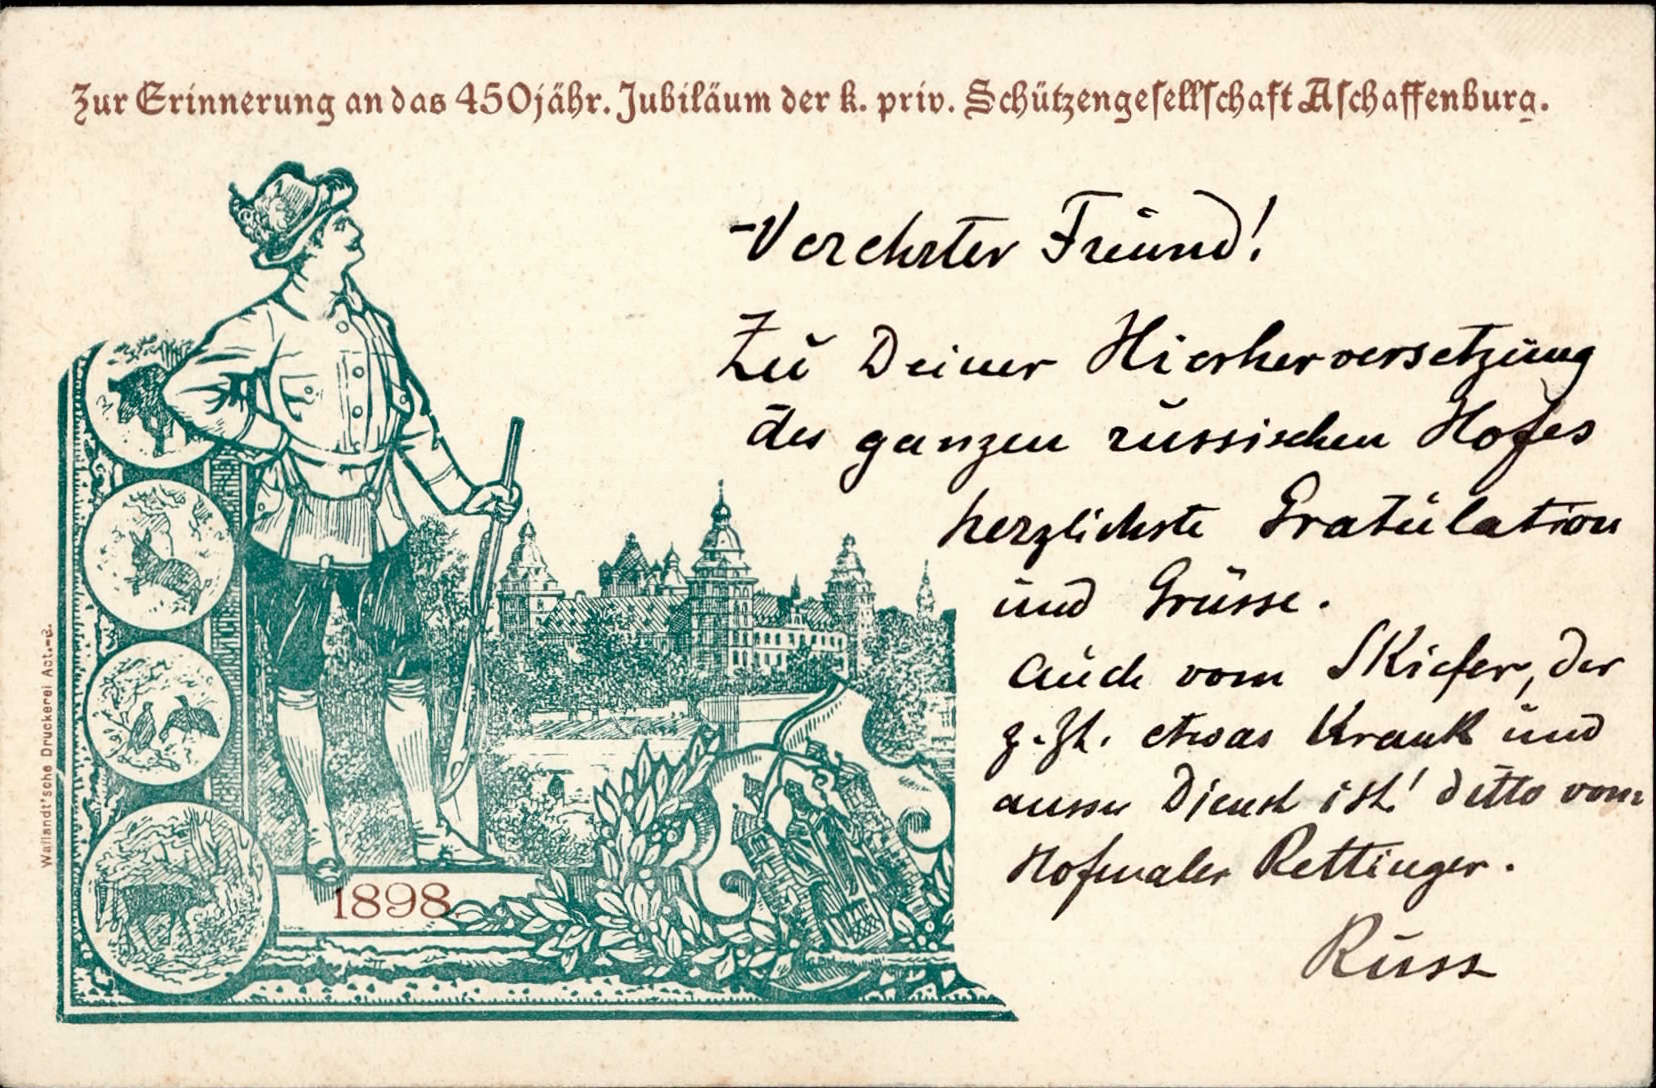 Zur Erinnerung an das 450jähr. Jubiläum der k. priv. Schützengesellschaft Aschaffenburg.
Verehrter Freund!
Zu Deiner Hierherversetzung
des ganzen russischen Hofes
herzlichste Gratulation
und Grüsse.
Auch vom SKiefer, der
z. Zt. etwas Krank und
ausser Dienst ist! ditto vom
Hofmaler Rettinger.
Russ
1898.
Wailandt'sche Druckerei Act.-G.